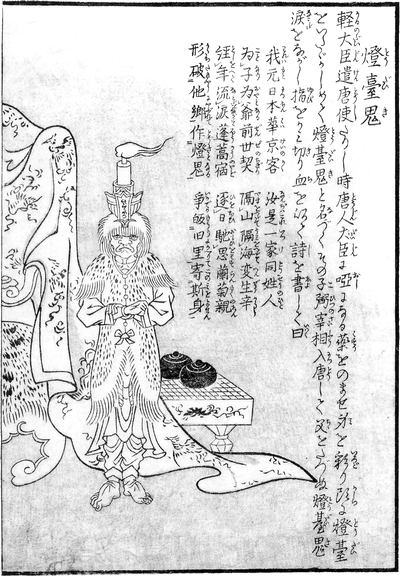 燈臺鬼
軽大臣遣唐使たりし時唐人大臣に唖になる薬をのませ身を彩り頭に燈臺
をいたゞかしめて燈臺鬼と名づくその子弼宰相入唐して父をたづぬ燈臺鬼
涙をながし指をかみ切り血を以て詩を書して曰
我元日本華京客 汝是一家同姓人
為子為爺前世契 隔山隔海変生辛
経年流涙蓬蒿宿 逐日馳思蘭菊親
形破他郷作燈鬼 争皈旧里寄斯身